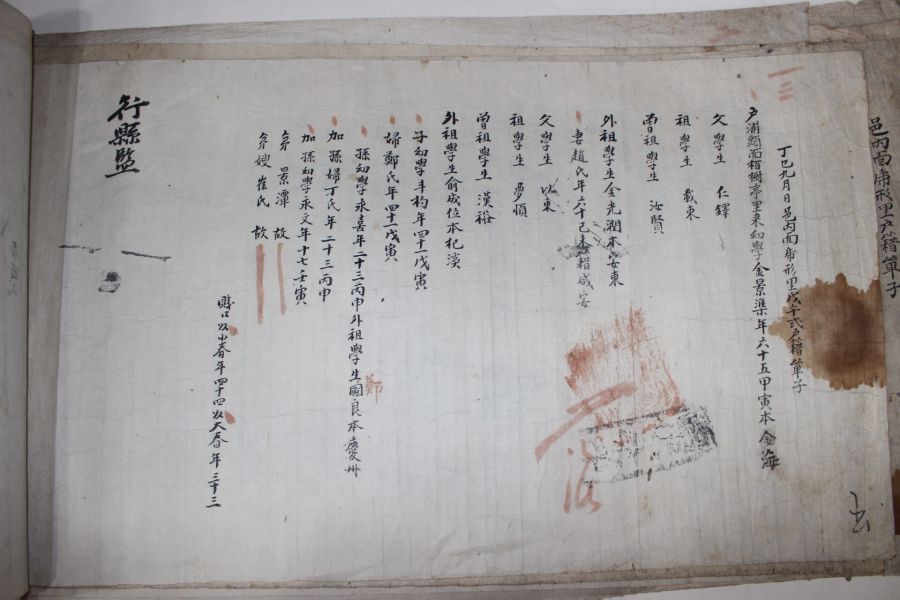 丁巳九月日邑內面南形里戊午式戶籍單子
戶浦頭面栢樹亭里東幼學金景濼年六十五甲寅本金海
父學生 仁鐸
祖學生 載東
曾祖學生 汝賢
外祖學生金光潤本安東
妻趙氏年六十己未籍咸安
父學生 以東
祖學生 夢楨
曾祖學生 漢裕
外祖學生俞成位本杞溪
子幼學 年四十一戊寅
婦鄭氏年四十一戊寅
孫幼學永喜年二十三丙申外祖學生鄭國良本慶州
加孫婦丁氏年二十三丙申
加孫幼學永文年十七壬寅
弟景潭故
弟嫂崔氏故
奴小春年四十四奴大春年三十三
行縣監
邑內面 形里戶籍單子